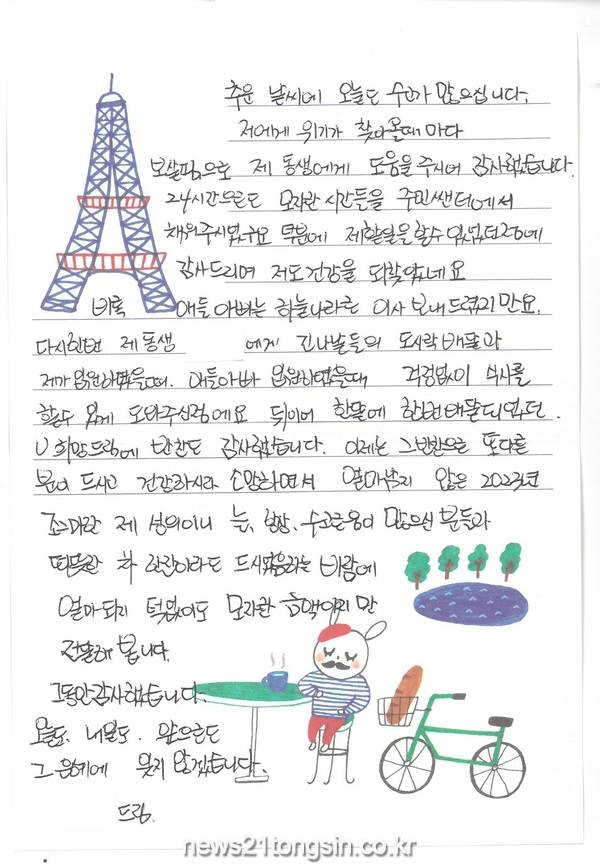 추운 날씨에 오늘도 수고가 많으십니다.
저에게 위기가 찾아올때 마다
보살핌으로 제 동생에게 도움을 주시어 감사했습니다.
24시간으로도 모자란 시간들을 주민쎈터에서
채워주시었구요 덕분에 제할일을 할수 있었던점에
감사드리며 저도 건강을 되찾았네요
비록 애들 아빠는 하늘나라로 이사 보내드렸지만요.
다시한번 제 동생 에게 긴나날들의 도시락 배달과
제가 입원하였을때. 애들아빠 입원하였을때 걱정없이 식사를
할수 있게 도와주신점에요 뒤이어 한달에 한번 배달되었던.
U 희망드림에 반찬도 감사했습니다. 이제는 그 반찬으로 또다른
분이 드시고 건강하시라 소망하면서 얼마남지 않은 2023년
조그마한 제 성의이니 늘, 항상, 수고로움이 많으신 분들과
따뜻한 차 한잔이라도 드시었음하는 바람에
얼마되지 턱없이도 모자란 금액이지만
전달해 봅니다.
그동안 감사했습니다.
오늘도. 내일도. 앞으로도
그 은혜에 잊지 않겠습니다.
드림.
news21tongsin.co.kr